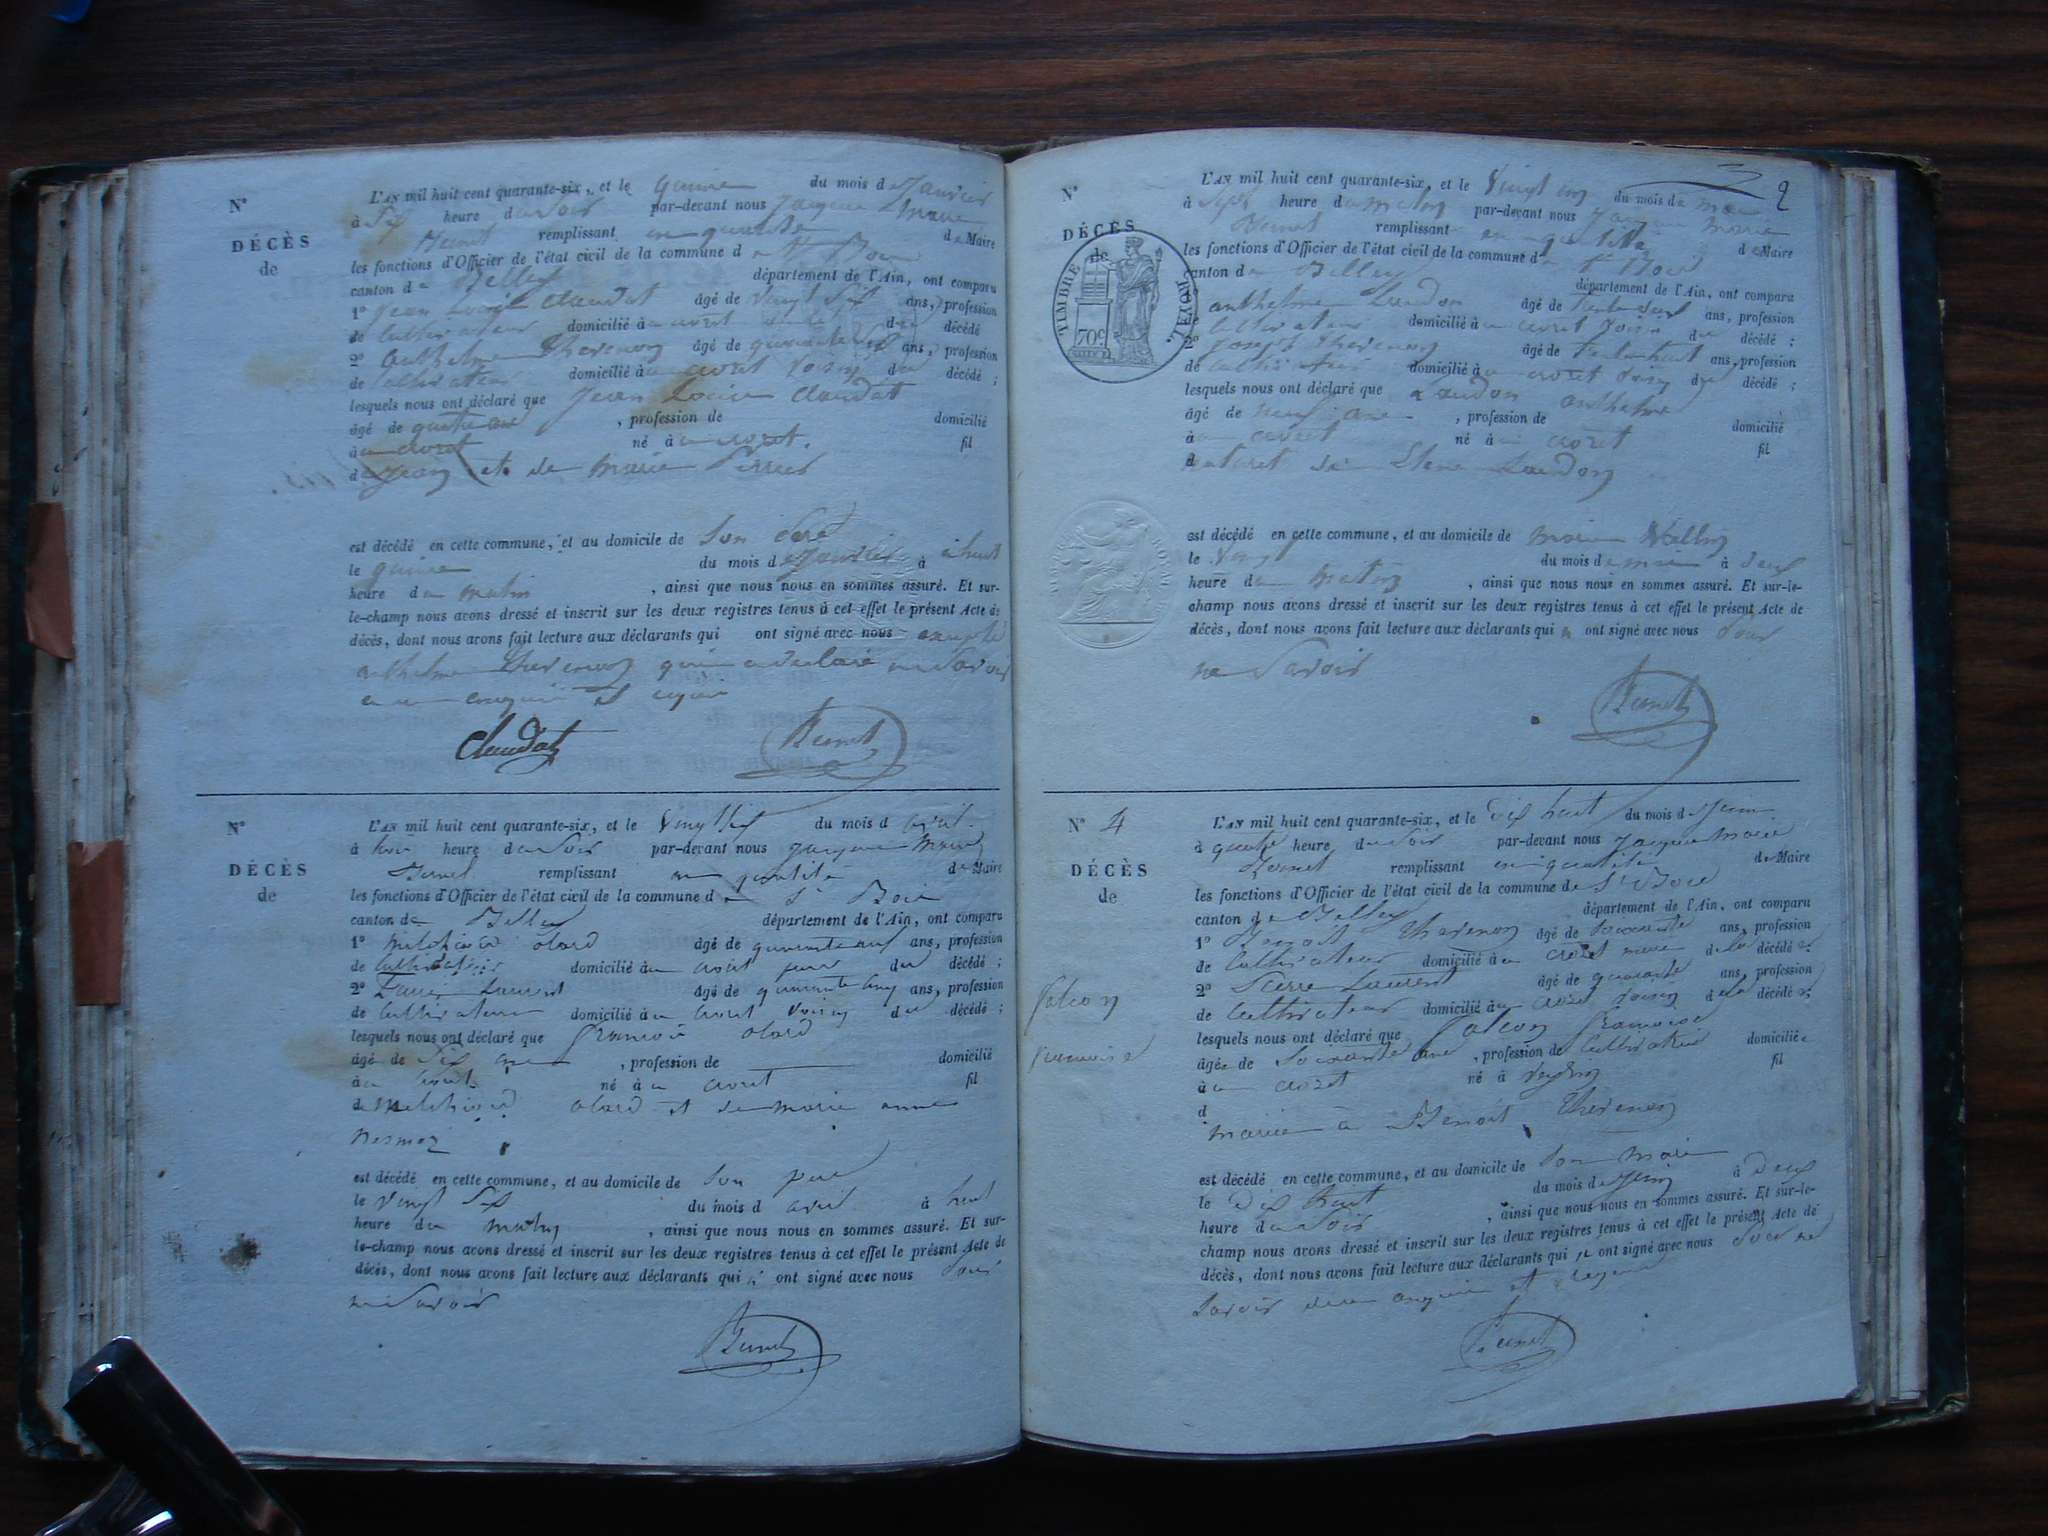 N°
DÉCÈS
de
L'AN mil huit cent quarante-six, et le quinze du mois de Janvier
à Six heure du Soir par-devant nous Jacque Marie
remplissant en qualité de Maire
les fonctions d'Officier de l'état civil de la commune de St Bois
canton de Belley département de l'Ain, ont comparu
1° Jean Louis Claudat âgé de vingt Six ans, profession
de Cultivateur domicilié à au crozet du décédé
2° Anthelme Thevenon âgé de quarante ans, profession
de Cultivateur domicilié à au crozet voisin du décédé ;
lesquels nous ont déclaré que Jean Louis Claudat
âgé de quatre ans , profession de domicilié
à au crozet né à au crozet. fil
de Jean et de Marie
est décédé en cette commune, et au domicile de Son père
le quinze du mois de Janvier à huit
heure du matin , ainsi que nous nous en sommes assuré. Et sur-
le-champ nous avons dressé et inscrit sur les deux registres tenus à cet effet le présent Acte de
décès, dont nous avons fait lecture aux déclarants qui ont signé avec nous excepté
anthelme Thevenon qui a déclaré ne Savoir
de ce enquis et requis
Claudat
N°
DÉCÈS
de
L'AN mil huit cent quarante-six, et le vingt Six du mois d avril
à heure du Soir par-devant nous Jacque Marie
remplissant en qualité de Maire
les fonctions d'Officier de l'état civil de la commune de St Bois
canton de Belley département de l'Ain, ont comparu
1° Melchior olard âgé de quarante neuf ans, profession
de Cultivateur domicilié à au crozet père du décédé ;
2° Laurent âgé de quarante cinq ans, profession
de Cultivateur domicilié à au crozet voisin du décédé ;
lesquels nous ont déclaré que françois olard
âgé de Six ans , profession de domicilié
à au crozet né à au crozet fil
de Melchior olard et de marie anne
est décédé en cette commune, et au domicile de Son père
le vingt Six du mois d avril à huit
heure du matin , ainsi que nous nous en sommes assuré. Et sur-
le-champ nous avons dressé et inscrit sur les deux registres tenus à cet effet le présent Acte de
décès, dont nous avons fait lecture aux déclarants qui n' ont signé avec nous pour
ne Savoir
2
N°
DÉCÈS
de
TIMBRE ROYAL
70c
L'AN mil huit cent quarante-six, et le vingt un du mois de mai
à Sept heure du matin par-devant nous Jacque Marie
remplissant en qualité de Maire
les fonctions d'Officier de l'état civil de la commune de St Bois
canton de Belley département de l'Ain, ont comparu
anthelme Landon âgé de ans, profession
de Cultivateur domicilié à au crozet voisin du décédé ;
2° Joseph Thevenon âgé de trente huit ans, profession
de cultivateur domicilié à au crozet voisin du décédé ;
lesquels nous ont déclaré que Landon anthelme
âgé de neuf ans , profession de domicilié
à au crozet né à au crozet fil
naturel de Landon
est décédé en cette commune, et au domicile de
le vingt du mois de mai à deux
heure du matin , ainsi que nous nous en sommes assuré. Et sur-le-
champ nous avons dressé et inscrit sur les deux registres tenus à cet effet le présent Acte de
décès, dont nous avons fait lecture aux déclarants qui n' ont signé avec nous pour
ne Savoir
N° 4
DÉCÈS
de
falcon
francoise
L'AN mil huit cent quarante-six, et le dix huit du mois de Juin
à quatre heure du Soir par-devant nous Jacque Marie
remplissant en qualité de Maire
les fonctions d'Officier de l'état civil de la commune de St Bois
canton de Belley département de l'Ain, ont comparu
1° Benoit Thevenon âgé de Soixante ans, profession
de Cultivateur domicilié à au crozet mari de la décédée
2° Pierre Laurent âgé de quarante ans, profession
de Cultivateur domicilié à au crozet voisin de la décédée
lesquels nous ont déclaré que falcon francoise
âgée de Soixante ans , profession de Cultivatrice domiciliée
à au crozet né à fil
d
mariée à Benoit Thevenon
est décédé en cette commune, et au domicile de Son mari
le dix huit du mois de Juin à deux
heure du Soir , ainsi que nous nous en sommes assuré. Et sur-le-
champ nous avons dressé et inscrit sur les deux registres tenus à cet effet le présent Acte de
décès, dont nous avons fait lecture aux déclarants qui n' ont signé avec nous pour ne
Savoir de ce enquis et requis